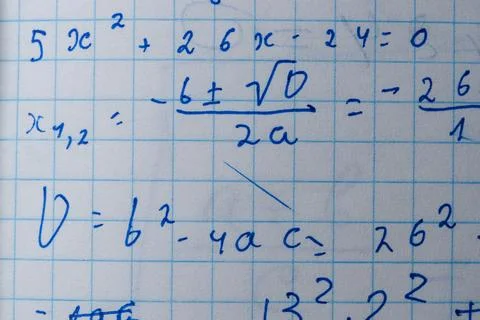 5x² + 26x - 24 = 0
x₁,₂ = -b ± √D / 2a = - 26 / 1
D = b² - 4ac = 26²
= 13² · 2² +